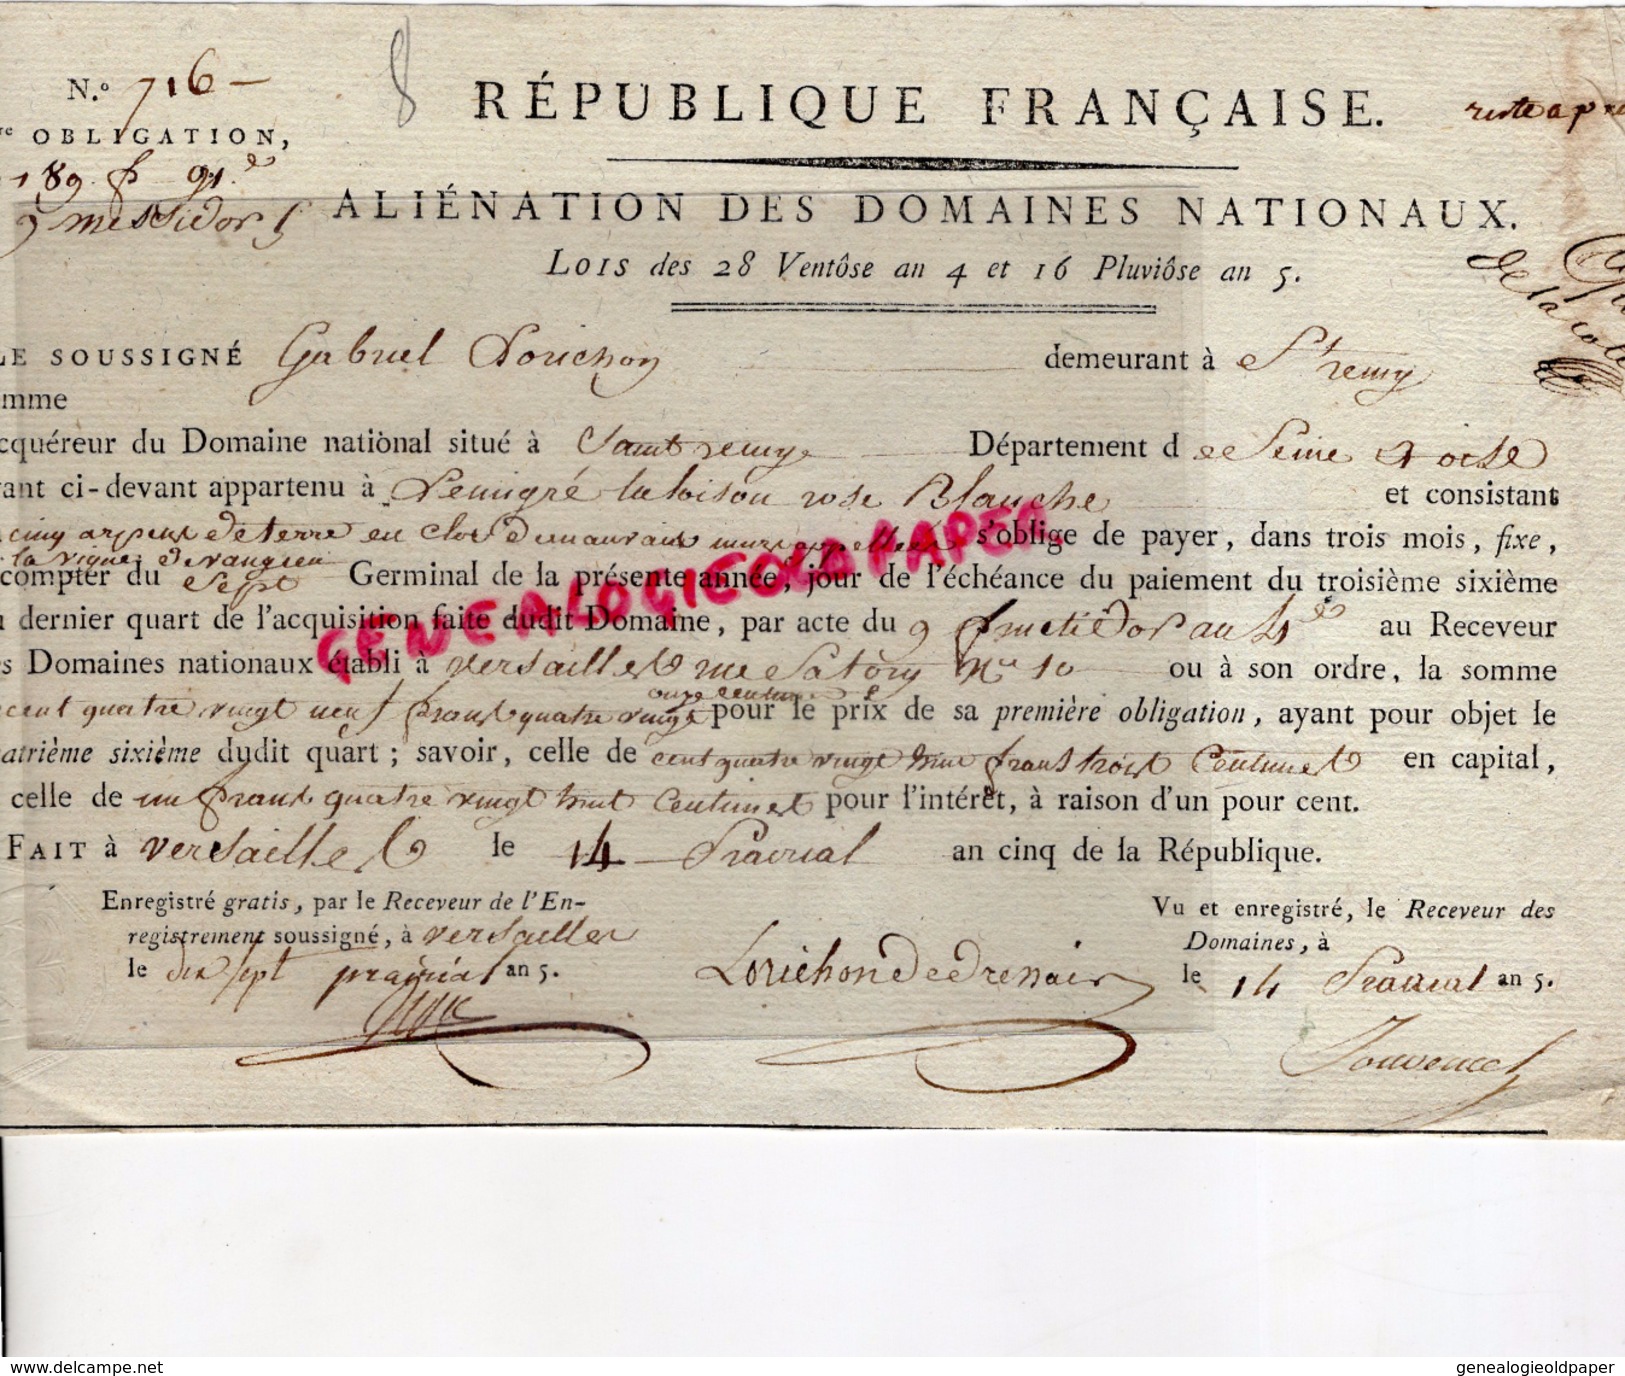 N.º 716
RÉPUBLIQUE FRANÇAISE.
OBLIGATION,
189 f 91.c
9 messidor 5
ALIÉNATION DES DOMAINES NATIONAUX.
LOIS des 28 Ventôse an 4 et 16 Pluviôse an 5.
LE SOUSSIGNÉ Gabriel Lorichon demeurant à St remy
omme
cquéreur du Domaine national situé à Saint remy Département d e Seine et oise
ant ci-devant appartenu à L'emigré laloison rose Blanche et consistant
cinq arpens de terre en clos de mauvais murs appellée s'oblige de payer, dans trois mois, fixe,
la vigne
compter du Sept Germinal de la présente année, jour de l'échéance du paiement du troisième sixième
dernier quart de l'acquisition faite dudit Domaine, par acte du 9 fructidor an 4e au Receveur
s Domaines nationaux établi à versailles rue Satory No 10 ou à son ordre, la somme
cent quatre vingt neuf francs quatre vingt onze centimes pour le prix de sa première obligation, ayant pour objet le
atrième sixième dudit quart; savoir, celle de cent quatre vingt huit francs trois Centimes en capital,
celle de un franc quatre vingt huit Centimes pour l'intérêt, à raison d'un pour cent.
FAIT à versailles le 14 Prairial an cinq de la République.
Enregistré gratis, par le Receveur de l'En-
registrement soussigné, à versailles
le dix sept prairial an 5.
Lorichon
Vu et enregistré, le Receveur des
Domaines, à
le 14 Prairial an 5.
Jouvencel
GENEALOGIEOLDPAPER
www.delcampe.net
genealogieoldpaper